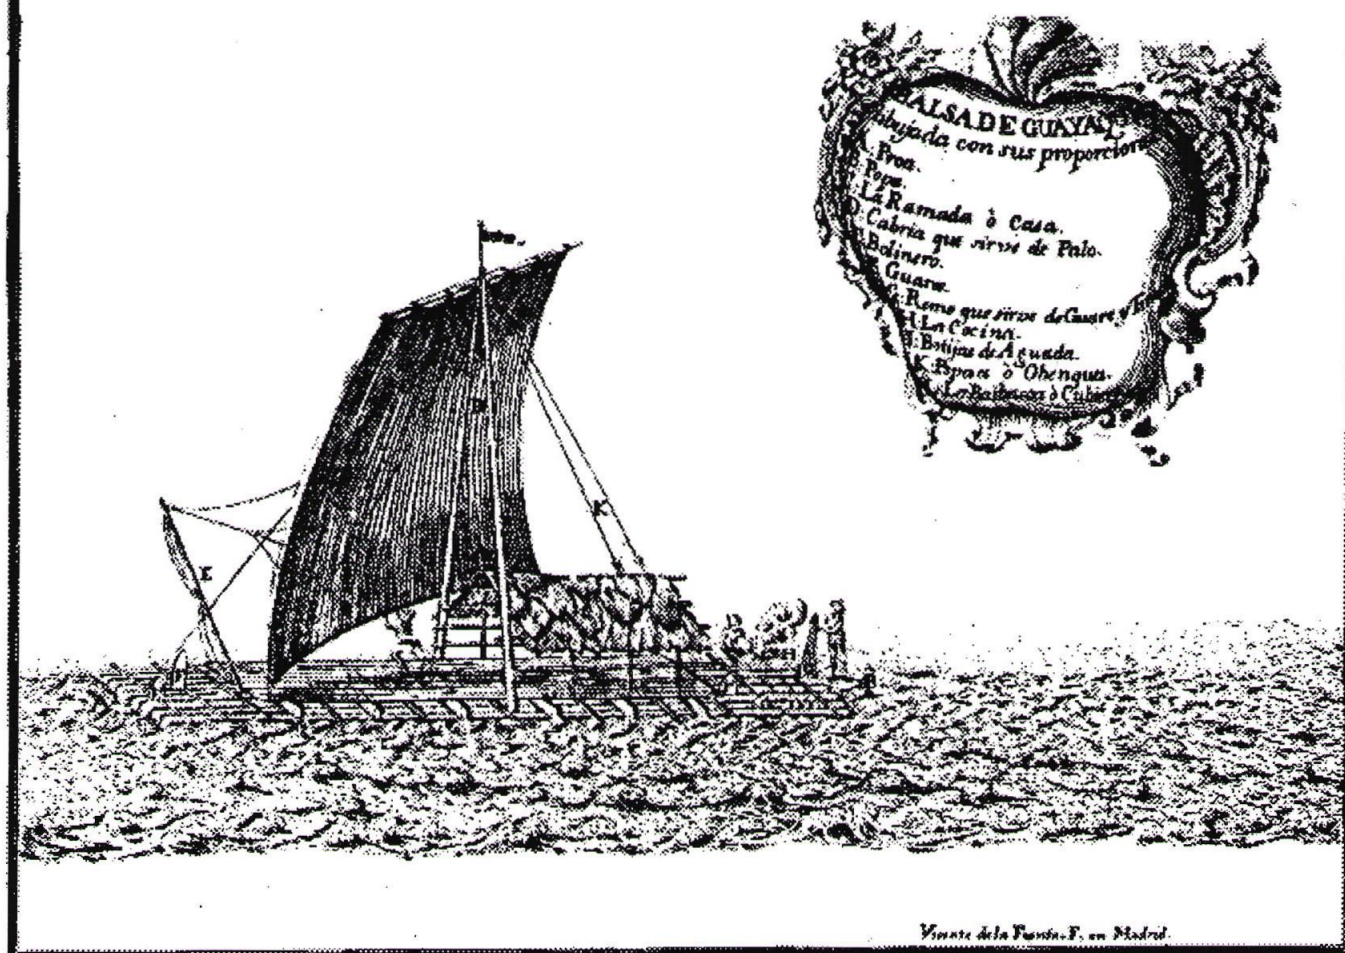 BALSA DE GUAYAQ
dibujada con sus proporciones
A. Proa.
B. Popa.
C. La Ramada ò Casa.
D. Cabria que sirve de Palo.
E. Bolinero.
F. Guares.
G. Remo que sirve de Guare y
H. La Cocina.
J. Botijas de Aguada.
K. Popaes ò Obenques.
L. La Barbacoa ò
D
K
E
H
Vicente de la Fuente. F. en Madrid.